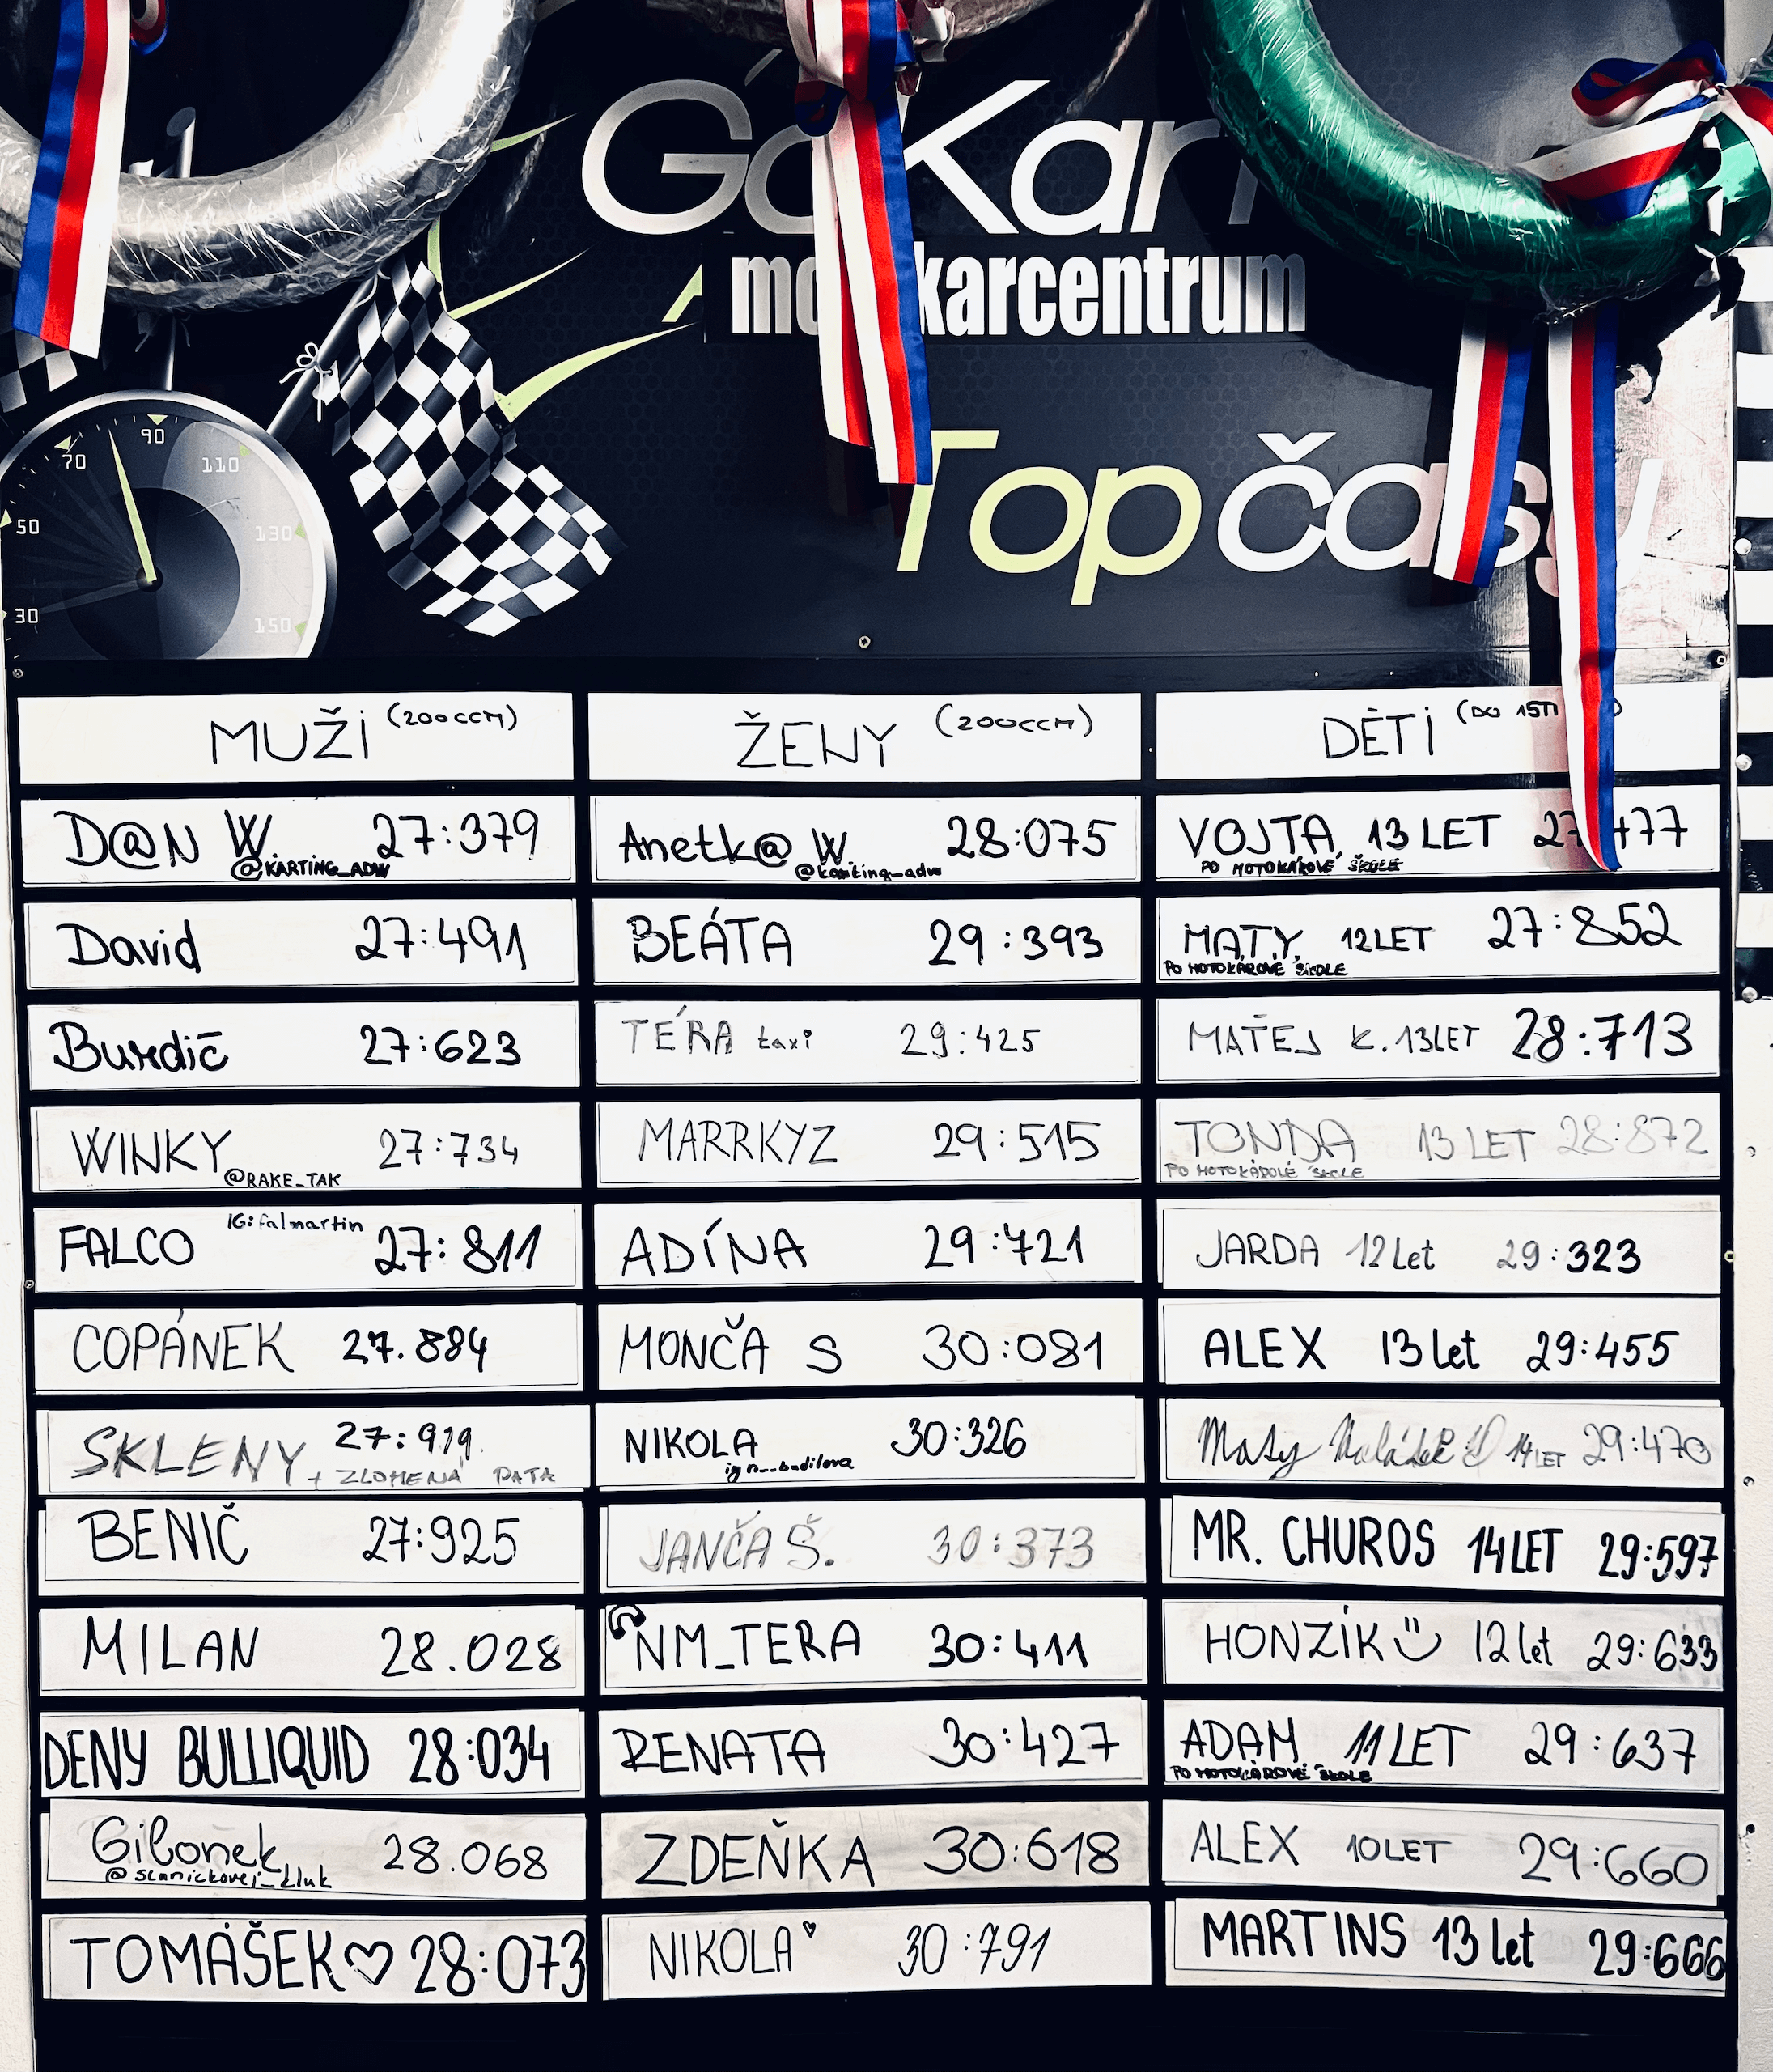 GoKart
karcentrum
Top časy
70 90 110
50 130
30 150
MUŽI (200CCM)
D@N W. 27:379
@KARTING_ADW
David 27:491
Burdič 27:623
WINKY 27:734
@RAKE_TAK
FALCO IG:falmartin 27:811
COPÁNEK 27.884
SKLENY 27:919
+ ZLOMENÁ PATA
BENIČ 27:925
MILAN 28.028
DENY BULLIQUID 28:034
Gibonek 28.068
TOMÁŠEK♡ 28:073
ŽENY (200CCM)
Anetk@ W. 28:075
@karting_adw
BEÁTA 29:393
TÉRA taxi 29:425
MARRKYZ 29:515
ADÍNA 29:721
MONČA S 30:081
NIKOLA 30:326
JANČA Š. 30:373
NM_TERA 30:411
RENATA 30:427
ZDEŇKA 30:618
NIKOLA♥ 30:791
DĚTI (DO 15TI
VOJTA 13 LET
PO MOTOKÁROVÉ ŠKOLE
MATY 12LET 27:852
PO MOTOKÁROVÉ ŠKOLE
MATĚJ K. 13LET 28:713
TONDA 13 LET 28:872
PO MOTOKÁROVÉ ŠKOLE
JARDA 12Let 29:323
ALEX 13let 29:455
Maty 14LET 29:470
MR. CHUROS 14LET 29:597
HONZÍK 12let 29:633
ADAM 11LET 29:637
PO MOTOKÁROVÉ ŠKOLE
ALEX 10LET 29:660
MARTINS 13let 29:666